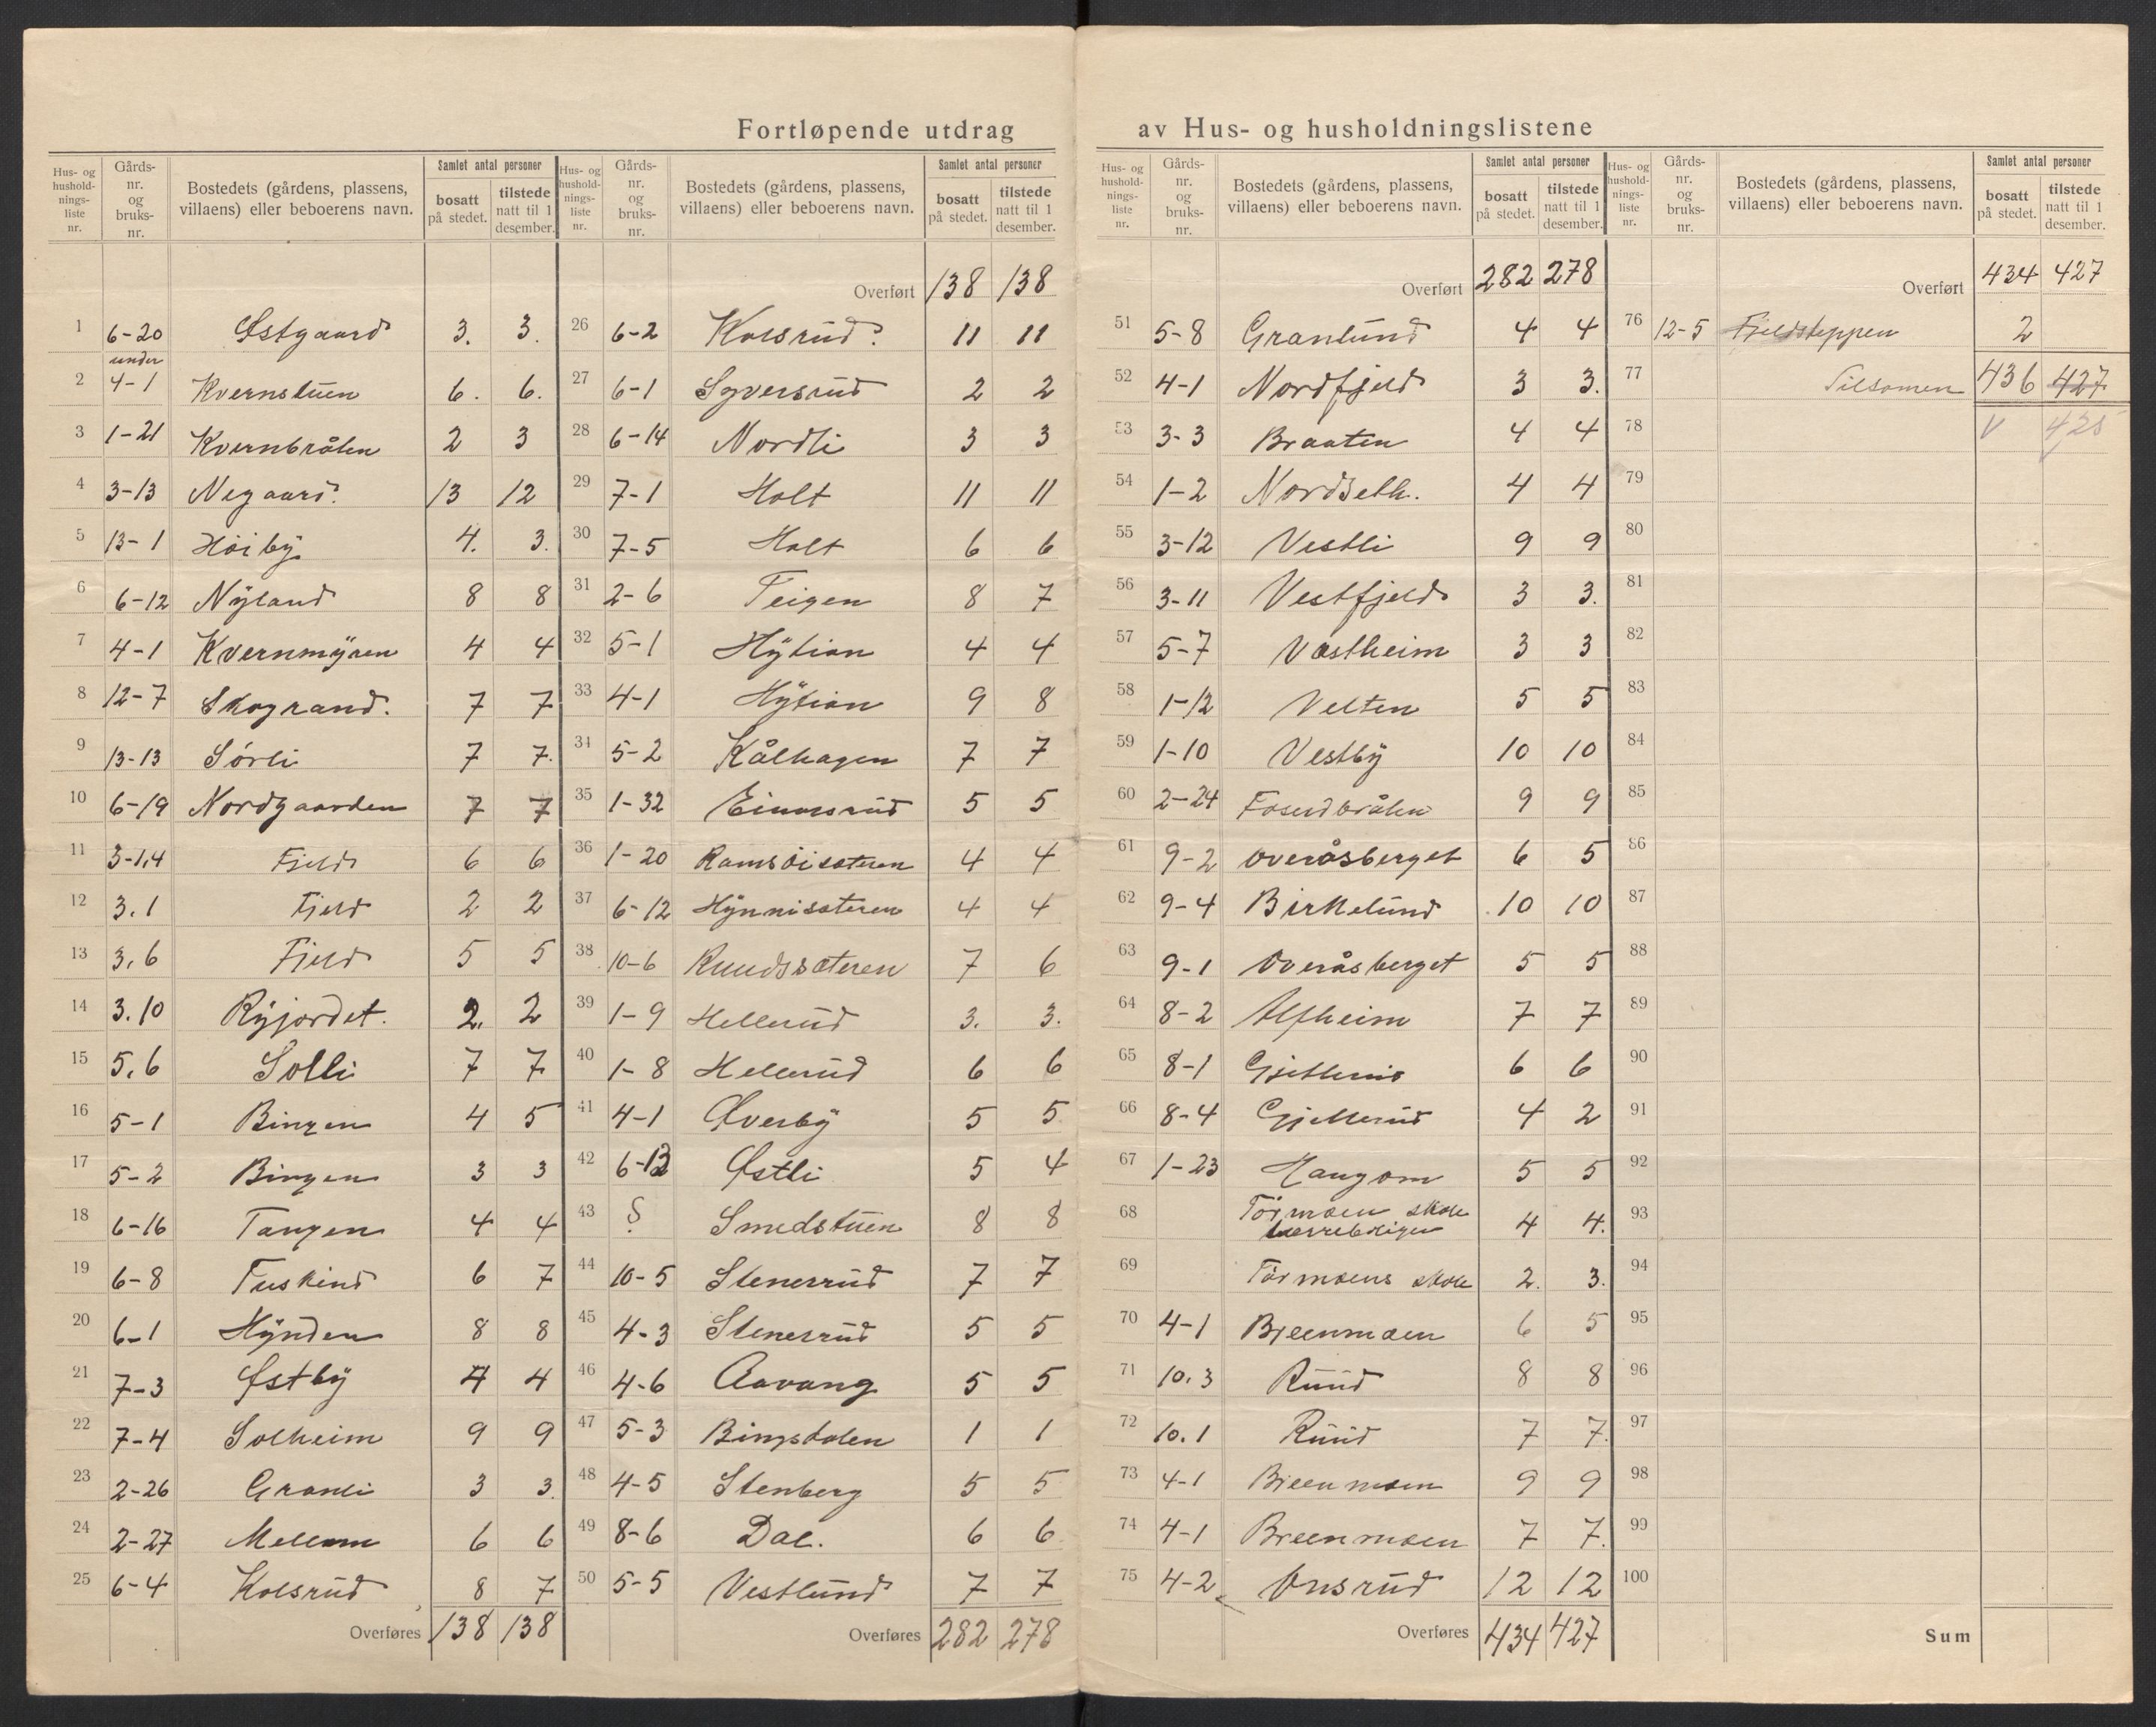 Fortløpende utdrag av Hus- og husholdningslistene
Hus- og hushold-nings-liste nr. Gårds-nr. og bruks-nr. Bostedets (gårdens, plassens, villaens) eller beboerens navn. Samlet antal personer bosatt på stedet. tilstede natt til 1 desember.
1 6-20 Østgaard 3. 3.
under
2 4-1 Kvernstuen 6. 6.
3 1-21 Kvernbråten 2 3
4 3-13 Negaard. 13 12
5 13-1 Høiby 4. 3.
6 6-12 Nyland 8 8
7 4-1 Kvernmyren 4 4
8 12-7 Skogrand. 7 7
9 13-13 Sørli 7 7.
10 6-19 Nordgaarden 7 7
11 3-1,4 Fjeld 6 6
12 3.1 Fjeld 2 2
13 3.6 Fjeld 5 5
14 3.10 Ryjordet. 2. 2
15 5.6 Solli 7 7
16 5-1 Bingen 4 5
17 5-2 Bingen 3 3
18 6-16 Tangen 4 4
19 6-8 Tuskind 6 7
20 6-1 Hynden 8 8
21 7-3 Østby 4 4
22 7-4 Solheim 9 9
23 2-26 Granli 3 3.
24 2-27 Mellem 6 6
25 6-4 Kolsrud 8 7
Overføres 138 138
Hus- og hushold-nings-liste nr. Gårds-nr. og bruks-nr. Bostedets (gårdens, plassens, villaens) eller beboerens navn. Samlet antal personer bosatt på stedet. tilstede natt til 1 desember.
Overført 138 138
26 6-2 Kolsrud. 11 11
27 6-1 Syversrud 2 2
28 6-14 Nordli 3 3
29 7-1 Holt 11 11
30 7-5 Holt 6 6
31 2-6 Teigen 8 7
32 5-1 Hytion 4 4
33 4-1 Hytion 9 8
34 5-2 Kålhagen 7 7
35 1-32 Einarsrud 5 5
36 1-20 Ramsøisæteren 4 4
37 6-12 Hynnisæteren 4 4
38 10-6 Ruudssæteren 7 6
39 1-9 Hellerud 3. 3.
40 1-8 Hellerud 6 6
41 4-1 Øverby 5 5
42 6-13 Østli 5 4
43 ? Smedstuen 8 8
44 10-5 Stenerrud 7 7
45 4-3 Stenerrud 5 5
46 4-6 Aavang 5 5
47 5-3 Bingsdalen 1 1
48 4-5 Stenberg 5 5
49 8-6 Dal. 6 6
50 5-5 Vestlund 7 7
Overføres 282 278
Hus- og hushold-nings-liste nr. Gårds-nr. og bruks-nr. Bostedets (gårdens, plassens, villaens) eller beboerens navn. Samlet antal personer bosatt på stedet. tilstede natt til 1 desember.
Overført 282 278
51 5-8 Granlund 4 4
52 4-1 Nordfjeld 3 3.
53 3-3 Braaten 4 4
54 1-2 Nordseth. 4 4
55 3-12 Vestli 9 9
56 3-11 Vestfjeld 3 3.
57 5-7 Vestheim 3 3
58 1-12 Velten 5 5
59 1-10 Vestby 10 10
60 2-24 Foserdbråten 9 9
61 9-2 Overåsberget 6 5
62 9-4 Birkelund 10 10
63 9-1 Overåsberget 5 5
64 8-2 Alfheim 7 7
65 8-1 Gjellerud 6 6
66 8-4 Gjellerud 4 2
67 1-23 Haugom 5 5
68 Tørmoen skole
lærreboligen 4 4.
69 Tørmoens skole 2. 3.
70 4-1 Breenmoen 6 5
71 10.3 Ruud 8 8
72 10.1 Ruud 7 7.
73 4-1 Breenmoen 9 9
74 4-1 Breenmoen 7 7.
75 4-2 Onsrud 12 12
Overføres 434 427
Hus- og hushold-nings-liste nr. Gårds-nr. og bruks-nr. Bostedets (gårdens, plassens, villaens) eller beboerens navn. Samlet antal personer bosatt på stedet. tilstede natt til 1 desember.
Overført 434 427
76 12-5 Fjeldsteppen 2
77 Tilsamen 436 427
78 V 425
79
80
81
82
83
84
85
86
87
88
89
90
91
92
93
94
95
96
97
98
99
100
Sum